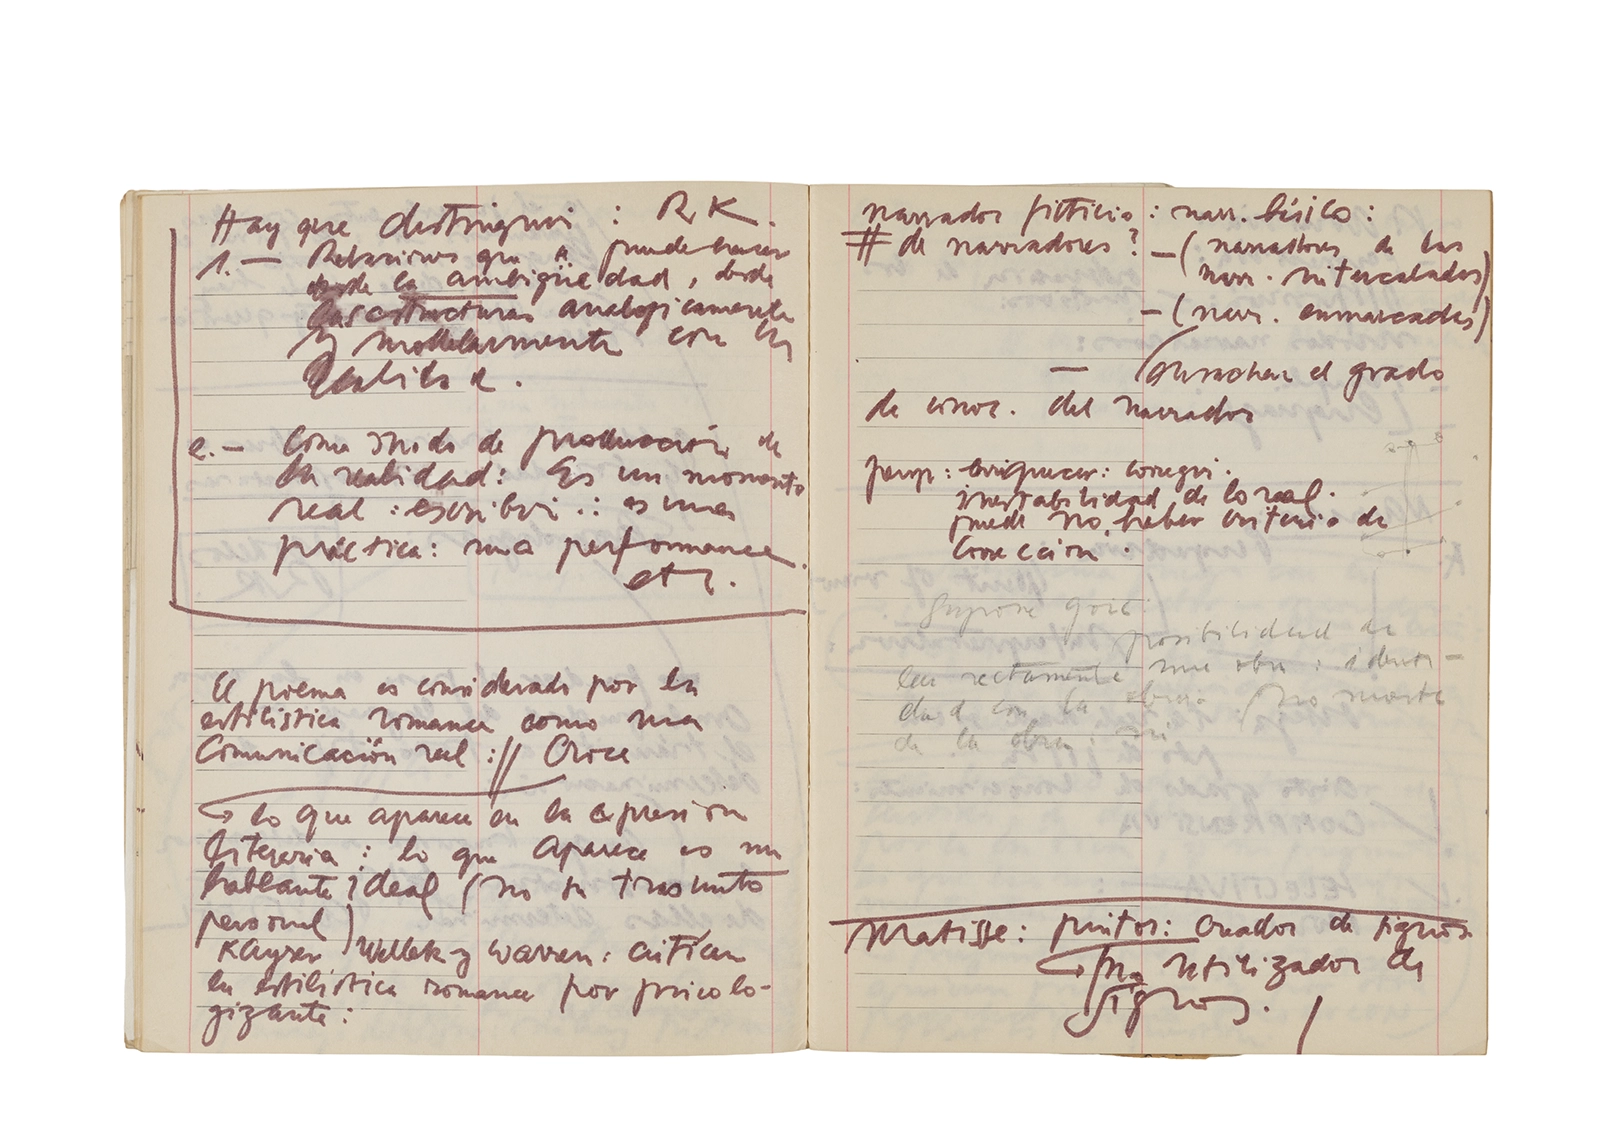 Hay que distinguir : R K.
1.— Relaciones que se puede hacer
desde la ambigüedad, desde
las estructuras analogicamente
y modelarmente con la
realidad.
2.— Como modo de producción de
la realidad: Es un momento
real : escribir .: es una
práctica: una performance
etc.
El poema es considerado por la
estilistica romance como una
comunicación real :// Croce
→ lo que aparece en la expresión
literaria : lo que aparece es un
hablante ideal (no su trasunto
personal)
Kayser Wellek y Warren: critican
la estilistica romance por psicolo-
gizante :
narrador ficticio : narr. básico :
# de narradores ? — (narradores de las
narr. intercaladas)
— (narr. enmarcadas)
— el grado
de conoc. del narrador
persp : enriquecer : corregir.
inestabilidad de lo real.
puede no haber criterio de
corrección.
Supone que :
posibilidad de
leer rectamente una obra : identi-
dad con la obra
de la obra
Matisse : pintor : creador de signos
→ no utilizador de
signos.